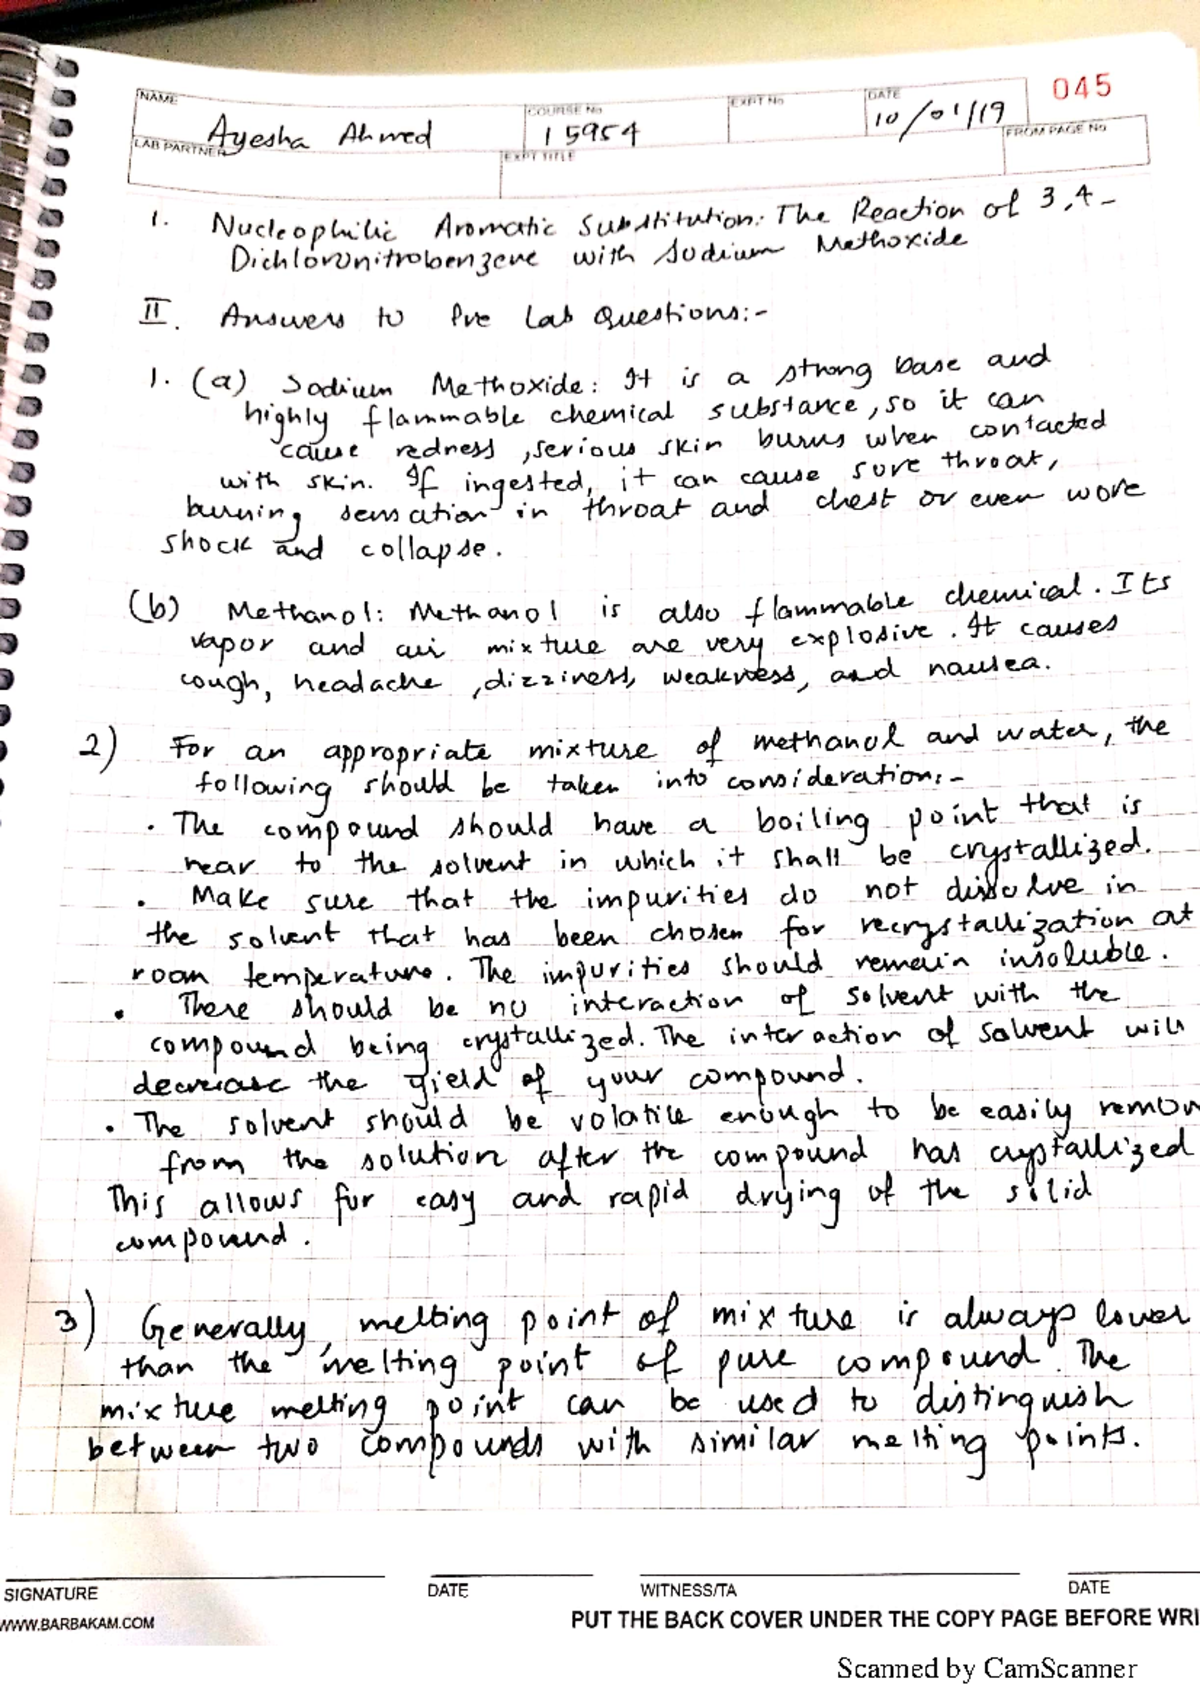 045
NAME
Ayesha Ahmed
COURSE No
15954
EXPT No
DATE
10/01/19
LAB PARTNER
EXPT TITLE
FROM PAGE No
1. Nucleophilic Aromatic Substitution: The Reaction of 3,4-
Dichloronitrobenzene with Sodium Methoxide
II. Answers to Pre Lab Questions:-
1. (a) Sodium Methoxide: It is a strong base and
highly flammable chemical substance, so it can
cause redness, serious skin burns when contacted
with skin. If ingested, it can cause sore throat,
burning sensation in throat and chest or even wore
shock and collapse.
(b) Methanol: Methanol is also flammable chemical. Its
vapor and air mixture are very explosive. It causes
cough, headache, dizziness, weakness, and nausea.
2) For an appropriate mixture of methanol and water, the
following should be taken into consideration:-
• The compound should have a boiling point that is
near to the solvent in which it shall be crystallized.
• Make sure that the impurities do not dissolve in
the solvent that has been chosen for recrystallization at
room temperature. The impurities should remain insoluble.
• There should be no interaction of solvent with the
compound being crystallized. The interaction of solvent will
decrease the yield of your compound.
• The solvent should be volatile enough to be easily remov
from the solution after the compound has crystallized
This allows for easy and rapid drying of the solid
compound.
3) Generally, melting point of mixture is always lower
than the melting point of pure compound. The
mixture melting point can be used to distinguish
between two compounds with similar melting points.
SIGNATURE
DATE
WITNESS/TA
DATE
WWW.BARBAKAM.COM
PUT THE BACK COVER UNDER THE COPY PAGE BEFORE WRI
Scanned by CamScanner